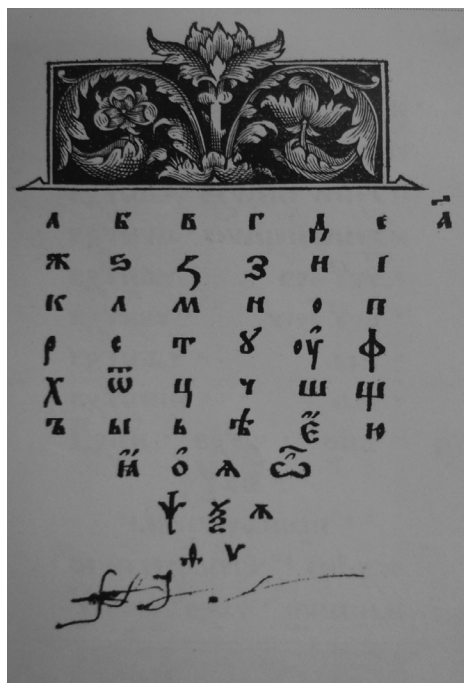 а б в г д є а҃
ж ѕ ꙁ з и і
к л м н о п
р с т ꙋ оу҆ ф
х ѿ ц ч ш щ
ъ ы ь ѣ є҆ ю
ꙗ҆ о҆ ѧ ѽ
ѱ ѯ ѧ
ѳ ѵ